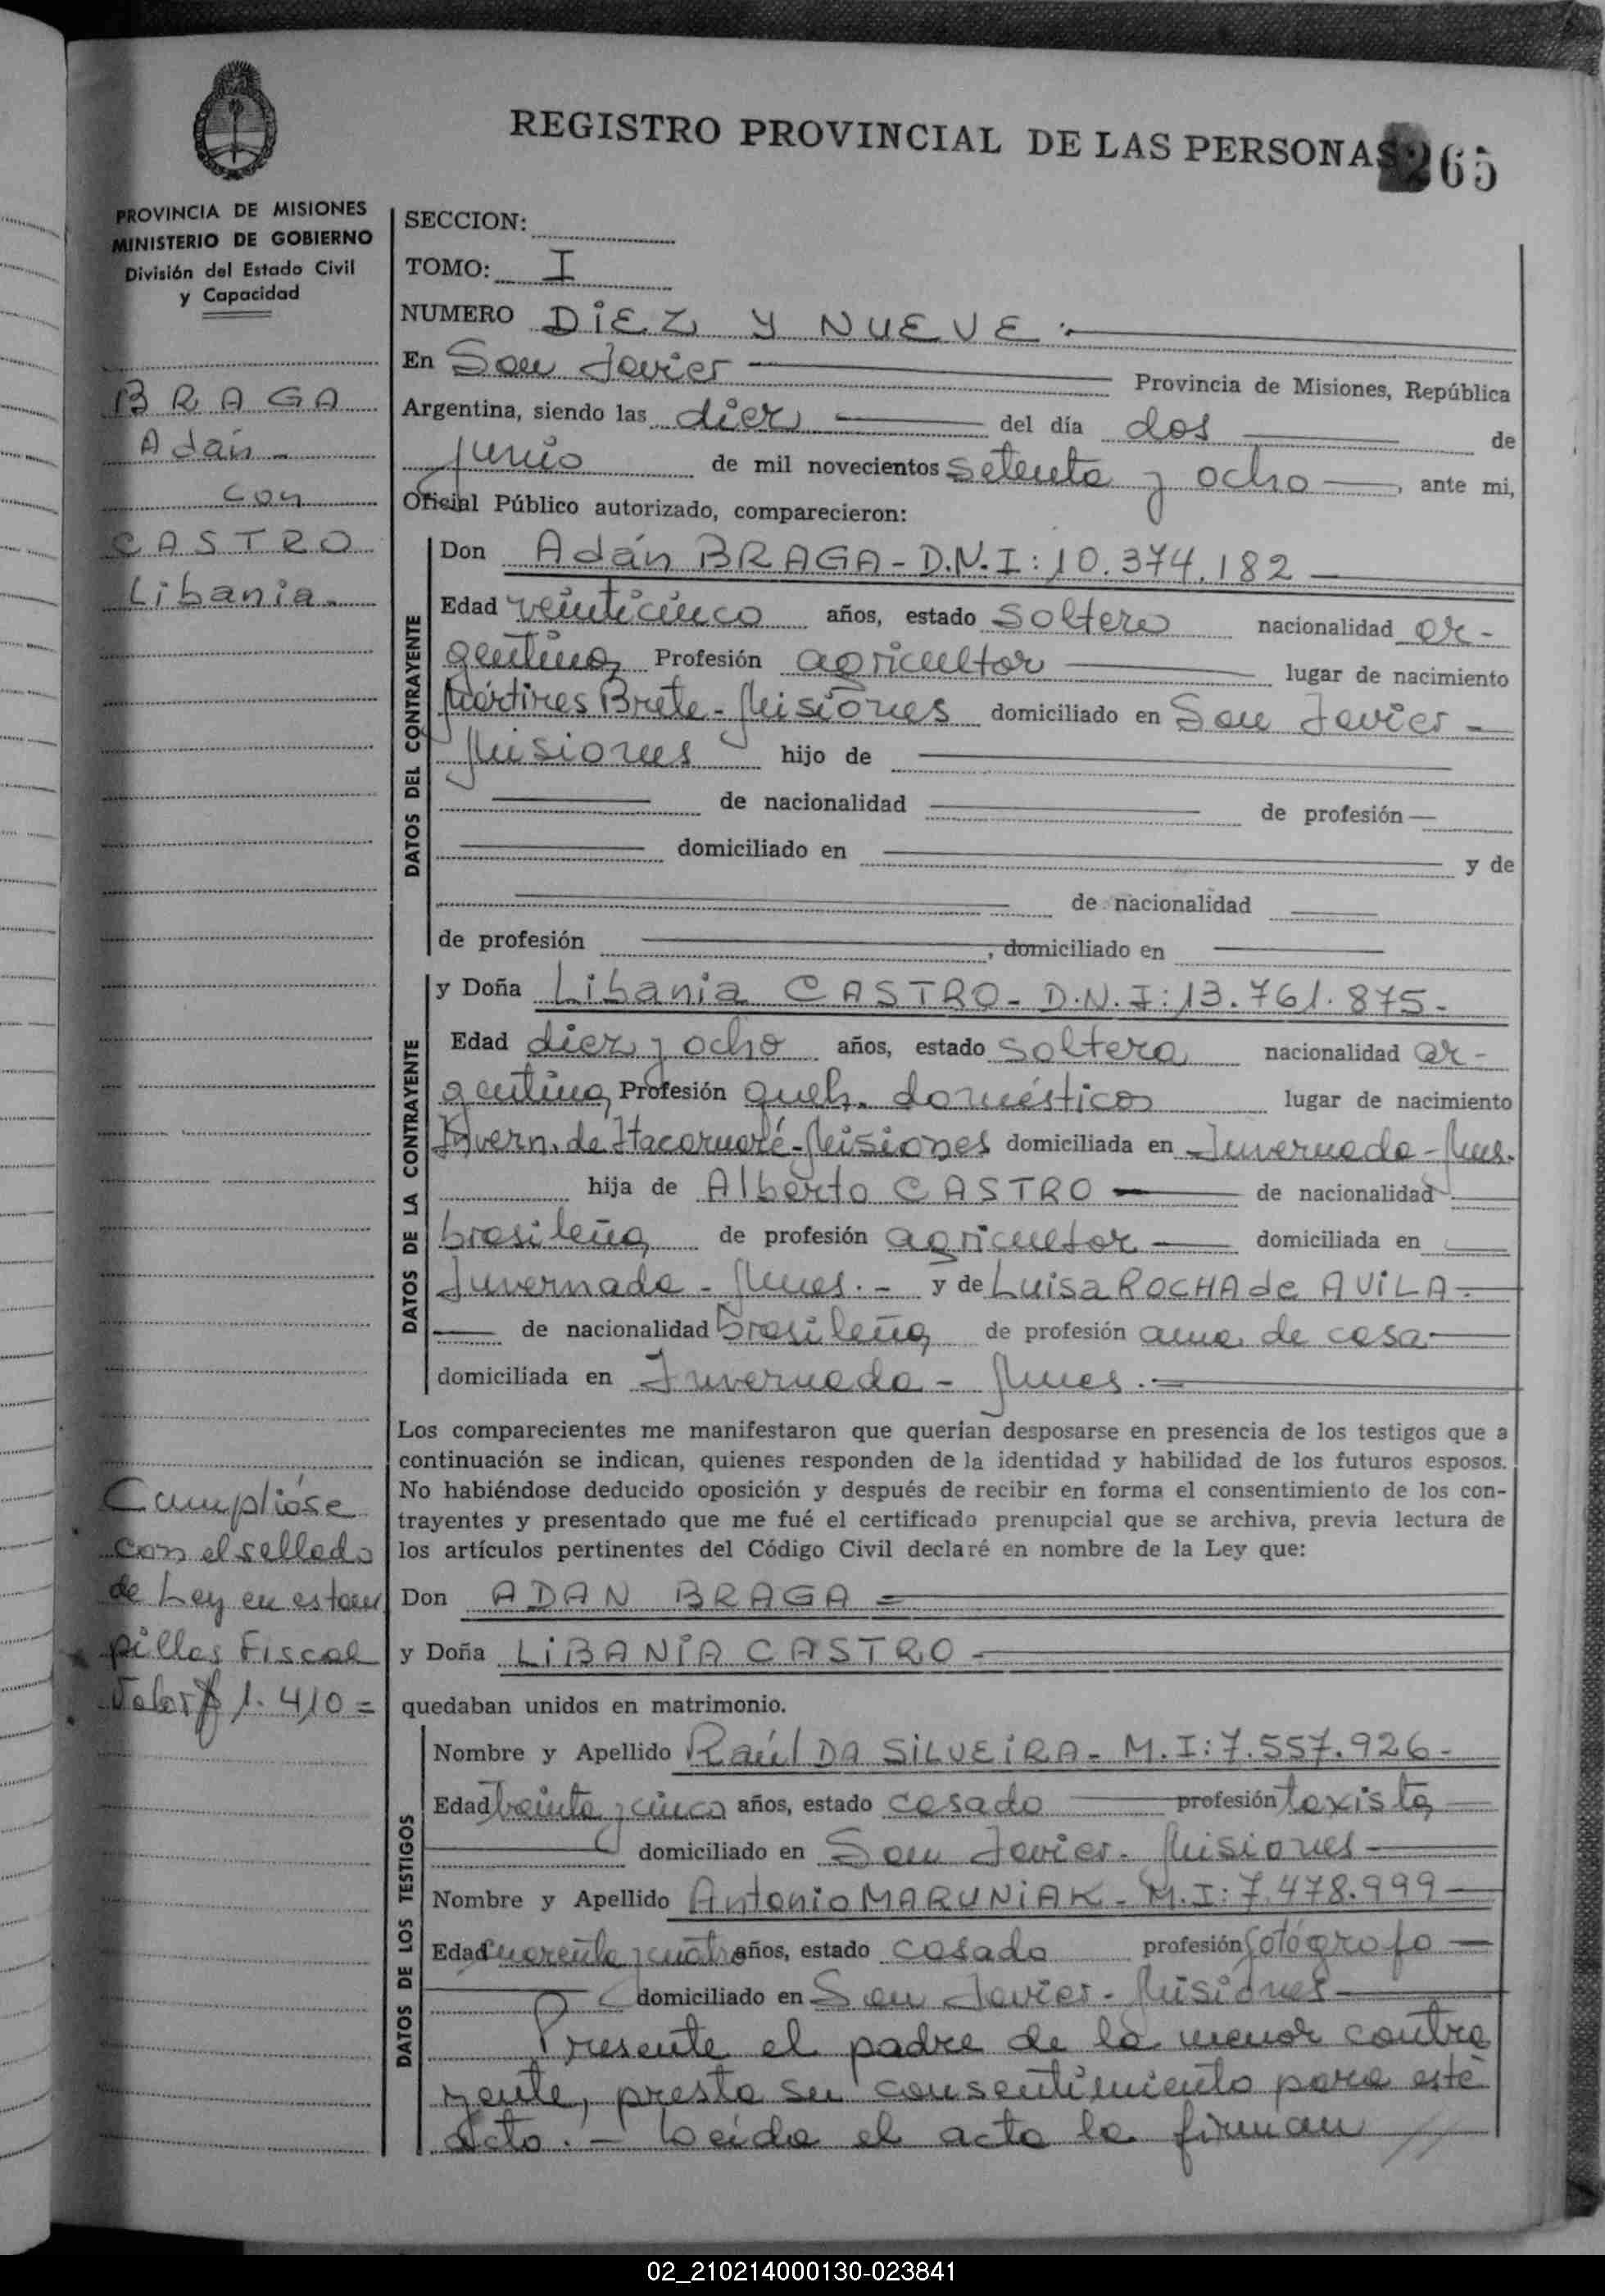 REGISTRO PROVINCIAL DE LAS PERSONAS
265
PROVINCIA DE MISIONES
MINISTERIO DE GOBIERNO
División del Estado Civil
y Capacidad
BRAGA
Adán -
con
CASTRO
Libania.
SECCION:
TOMO: I
NUMERO DiEZ Y NUEVE.
En San Javier Provincia de Misiones, República
Argentina, siendo las diez del día dos de
junio de mil novecientos setenta y ocho, ante mi,
Oficial Público autorizado, comparecieron:
DATOS DEL CONTRAYENTE
Don Adán BRAGA - D.N.I: 10.374.182
Edad veinticinco años, estado soltero nacionalidad ar-
gentina, Profesión agricultor lugar de nacimiento
Mártires Brete - Misiones domiciliado en San Javier -
Misiones hijo de
de nacionalidad de profesión
domiciliado en y de
de nacionalidad
de profesión , domiciliado en
DATOS DE LA CONTRAYENTE
y Doña Libania CASTRO - D.N.I: 13.761.875.-
Edad diez y ocho años, estado soltera nacionalidad ar-
gentina, Profesión queh. domésticos lugar de nacimiento
Invern. de Itacaruaré - Misiones domiciliada en Invernada - Mnes.
hija de Alberto CASTRO de nacionalidad
brasileña de profesión agricultor domiciliada en
Invernada - Mnes. - y de Luisa ROCHA de AViLA.
de nacionalidad brasileña de profesión ama de casa
domiciliada en Invernada - Mnes.
Los comparecientes me manifestaron que querían desposarse en presencia de los testigos que a
continuación se indican, quienes responden de la identidad y habilidad de los futuros esposos.
No habiéndose deducido oposición y después de recibir en forma el consentimiento de los con-
trayentes y presentado que me fué el certificado prenupcial que se archiva, previa lectura de
los artículos pertinentes del Código Civil declaré en nombre de la Ley que:
Don ADAN BRAGA =
y Doña LiBANiA CASTRO -
quedaban unidos en matrimonio.
Cumplióse
con el sellado
de Ley en estam
pillas Fiscal
Valor $ 1.410 =
DATOS DE LOS TESTIGOS
Nombre y Apellido Raúl DA SiLVEiRA - M.I: 7.557.926-
Edad treinta y cinco años, estado casado profesión taxista
domiciliado en San Javier - Misiones
Nombre y Apellido Antonio MARUNiAK - M.I: 7.478.999
Edad cuarenta y cuatro años, estado casado profesión fotógrafo
domiciliado en San Javier - Misiones
Presente el padre de la menor contra
yente, presta su consentimiento para este
acto. - Leída el acta la firman //
02_210214000130-023841